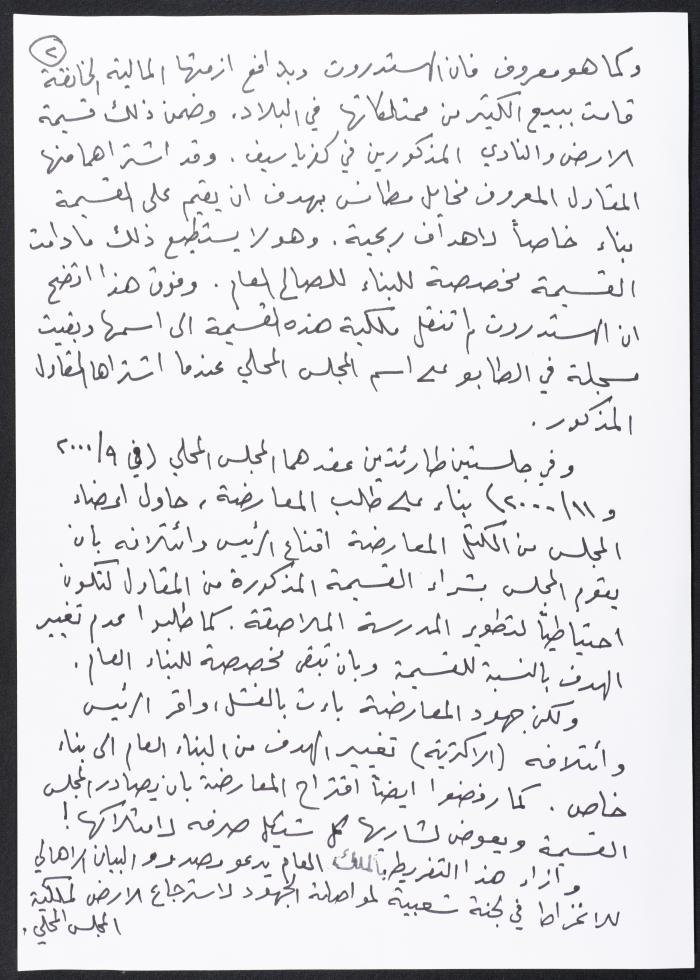 ٢
وكما هو معروف فان الهستدروت وبدافع ازمتها المالية الخانقة
قامت ببيع الكثير من ممتلكاتها في البلاد. وضمن ذلك قسيمة
الارض والنادي المذكورين في كفرياسيف. وقد اشتراهما منها
المقاول المعروف نخايل مطانس بهدف ان يقيم على القسيمة
بناء خاصاً لاهداف ربحية. وهو لا يستطيع ذلك ما دامت
القسيمة مخصصة للبناء للصالح العام. وفوق هذا اتضح
ان الهستدروت لم تنقل ملكية هذه القسيمة الى اسمها وبقيت
مسجلة في الطابو على اسم المجلس المحلي عندما اشتراها المقاول
المذكور.
وفي جلستين طارئتين عقدهما المجلس المحلي (في ٢٠٠٠/٩
و ٢٠٠٠/١١) بناء على طلب المعارضة، حاول اعضاء
المجلس من الكتل المعارضة اقناع الرئيس وائتلافه بان
يقوم المجلس بشراء القسيمة المذكورة من المقاول لتكون
احتياطياً لتطوير المدرسة الملاصقة. كما طلبوا عدم تغيير
الهدف بالنسبة للقسيمة وبان تبقى مخصصة للبناء العام.
ولكن جهود المعارضة باءت بالفشل، واقر الرئيس
وائتلافه (الاكثرية) تغيير الهدف من البناء العام الى بناء
خاص. كما رفضوا ايضاً اقتراح المعارضة بان يصادر المجلس
القسيمة ويعوض لشاريها كل شيكل صرفه لامتلاكها!
وازاء هذا التفريط بالملك العام يدعو مصدرو البيان الاهالي
للانخراط في لجنة شعبية لمواصلة الجهود لاسترجاع الارض لملكية
المجلس المحلي.